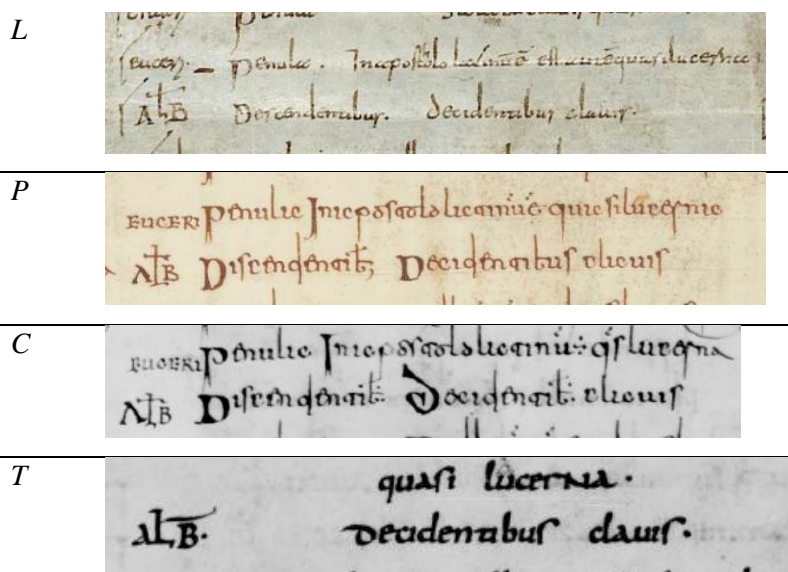 L
eucerī. – penulae. In apostolo quasi lucerna
ALB Descendentibus. decidentibus clauis.
P
EUCERI penulae In apostolo quae si lucernae
ALB Discendentib; Decidentibus clauis
C
EUCERI penulae In apostolo lucerna
ALB Discendentib: Decidentib: clauis
T
quasi lucerna.
ALB. Decidentibus clauis.